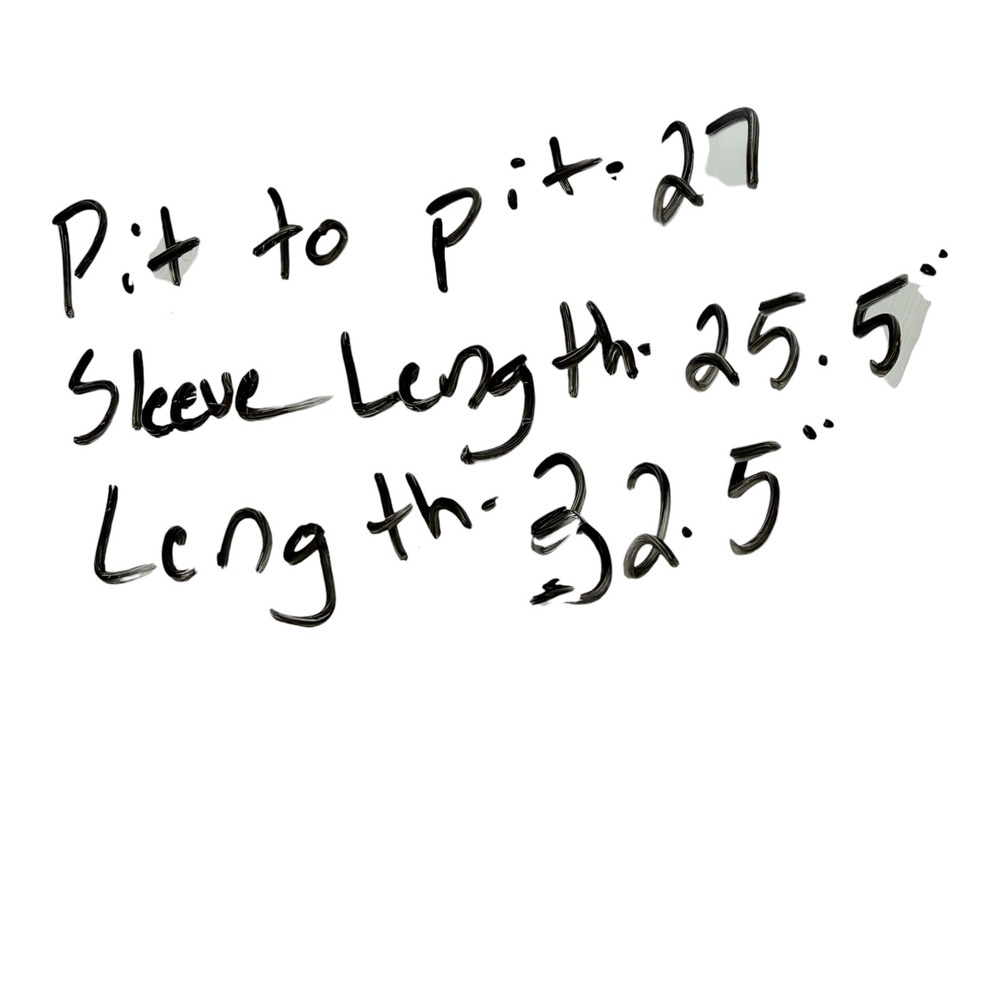 Pit to pit. 27
Sleeve Length. 25.5"
Length. 32.5"